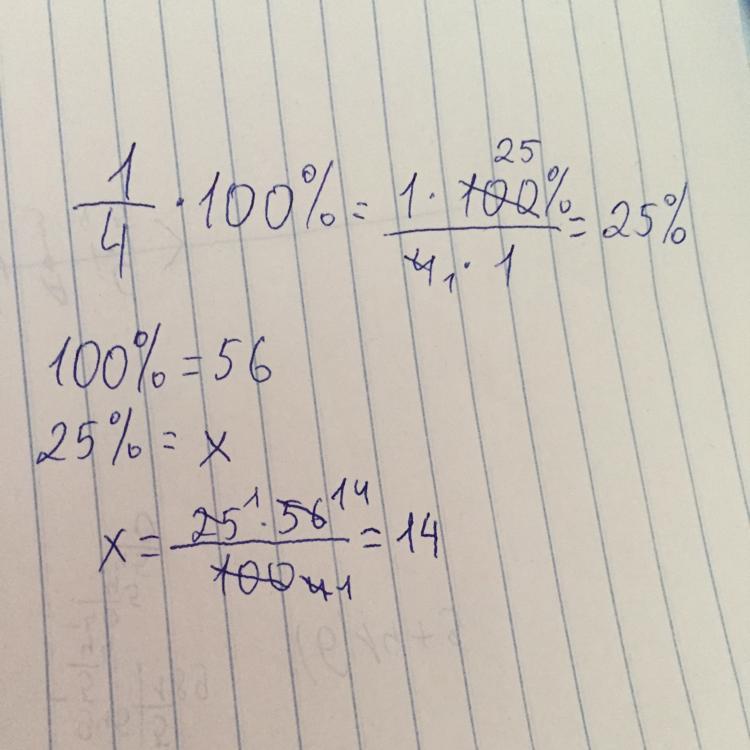 1/4 · 100% = 1 · 100% 25 / 4 1 · 1 = 25%
100% = 56
25% = x
x = 25 1 · 56 14 / 100 4 1 = 14